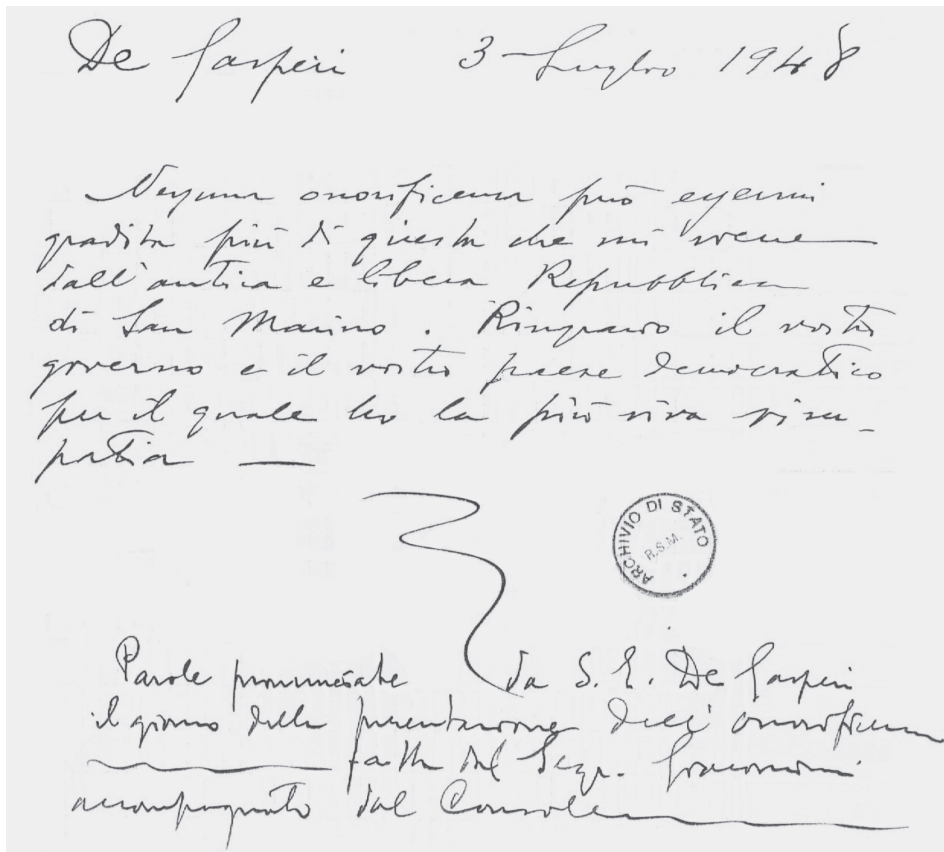 De Gasperi 3 Luglio 1948
Nessuna onorificenza può essermi
gradita più di questa che mi viene
dall'antica e libera Repubblica
di San Marino. Ringrazio il vostro
governo e il vostro paese democratico
per il quale ho la più viva sim-
patia —
ARCHIVIO DI STATO
R.S.M.
Parole pronunciate da S. E. De Gasperi
il giorno della presentazione dell'onorificenza
fatta dal Segr. Giacomini
accompagnato dal Console